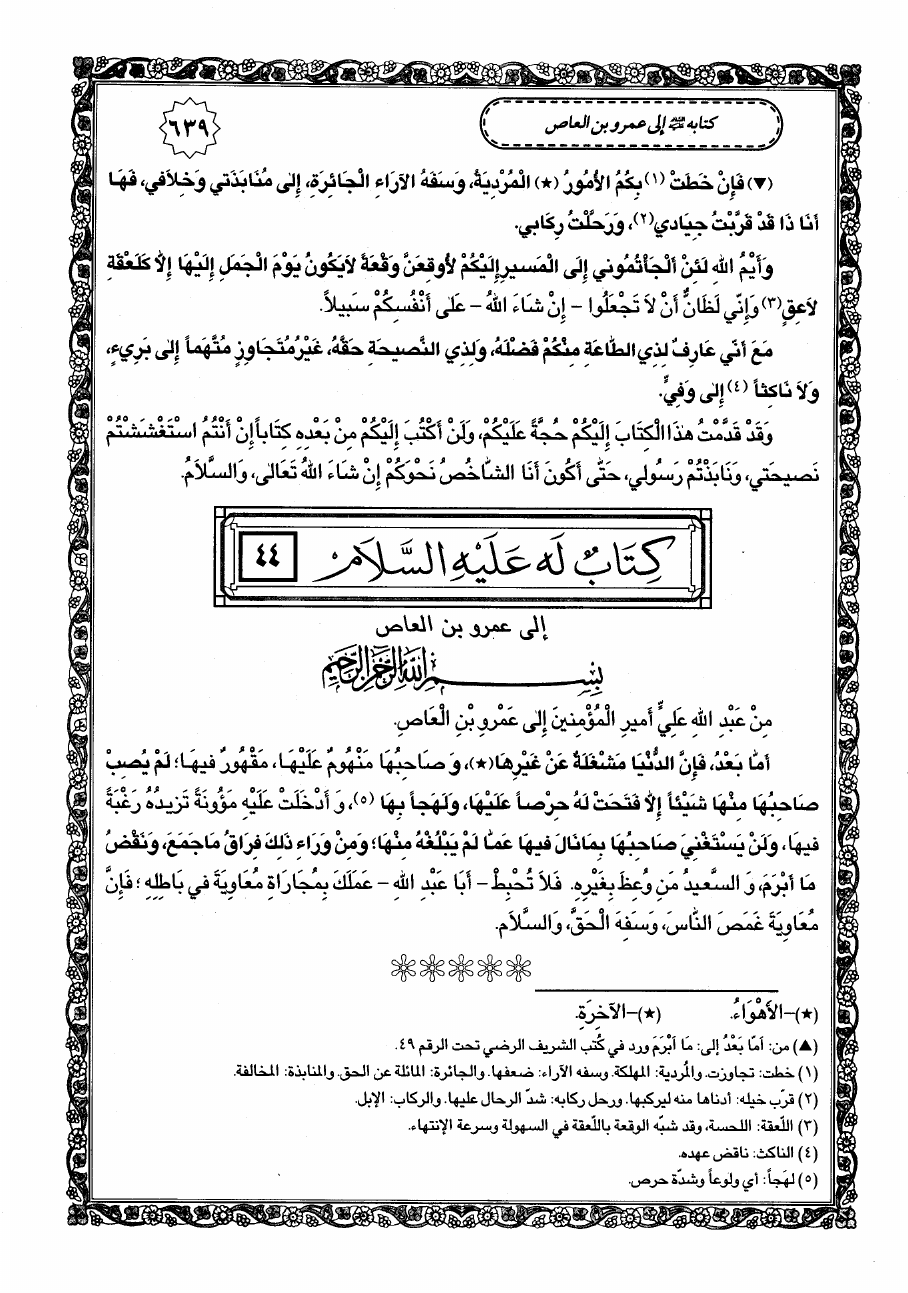 كتابه عليه السلام إلى عمرو بن العاص
٦٣٩
(▼) فَإِنْ خَطَتْ (١) بِكُمُ الأُمُورُ (★) الْمُرْدِيَةُ، وَسَفَهُ الآرَاءِ الْجَائِرَةِ، إِلى مُنَابَذَتي وَخِلاَفي، فَهَا
أَنَا ذَا قَدْ قَرَّبْتُ جِيَادي (٢)، وَرَحَّلْتُ رِكَابي.
وَأَيْمُ اللهِ لَئِنْ أَلْجَأْتُمُوني إِلَى الْمَسيرِ إِلَيْكُمْ لأُوقِعَنَّ وَقْعَةً لاَيَكُونُ يَوْمَ الْجَمَلِ إِلَيْهَا إِلاَّ كَلَعْقَةِ
لاَعِقٍ (٣) وَإِنّي لَظَانٌّ أَنْ لاَ تَجْعَلُوا - إِنْ شَاءَ اللهُ - عَلى أَنْفُسِكُمْ سَبيلاً.
مَعَ أَنّي عَارِفٌ لِذِي الطَّاعَةِ مِنْكُمْ فَضْلَهُ، وَلِذِي النَّصيحَةِ حَقَّهُ، غَيْرُ مُتَجَاوِزٍ مُتَّهَماً إِلى بَرِيءٍ،
وَلاَ نَاكِثاً (٤) إِلى وَفِيٍّ.
وَقَدْ قَدَّمْتُ هذَا الْكِتَابَ إِلَيْكُمْ حُجَّةً عَلَيْكُمْ، وَلَنْ أَكْتُبَ إِلَيْكُمْ مِنْ بَعْدِهِ كِتَاباً إِنْ أَنْتُمُ اسْتَغْشَشْتُمْ
نَصيحَتي، وَنَابَذْتُمْ رَسُولي، حَتّى أَكُونَ أَنَا الشَّاخِصُ نَحْوَكُمْ إِنْ شَاءَ اللهُ تَعَالى، وَالسَّلاَمُ.
كِتَابٌ لَه عَلَيْهِ السَّلَام
٤٤
إلى عمرو بن العاص
بِسْمِ اللهِ الرَّحْمنِ الرَّحيمِ
مِنْ عَبْدِ اللهِ عَلِيٍّ أَميرِ الْمُؤْمِنينَ إِلى عَمْرِو بْنِ الْعَاصِ.
أَمَّا بَعْدُ، فَإِنَّ الدُّنْيَا مَشْغَلَةٌ عَنْ غَيْرِهَا (★)، وَ صَاحِبُهَا مَنْهُومٌ عَلَيْهَا، مَقْهُورٌ فيهَا؛ لَمْ يُصِبْ
صَاحِبُهَا مِنْهَا شَيْئاً إِلاَّ فَتَحَتْ لَهُ حِرْصاً عَلَيْهَا، وَلَهَجاً بِهَا (٥)، وَ أَدْخَلَتْ عَلَيْهِ مَؤُونَةً تَزيدُهُ رَغْبَةً
فيهَا، وَلَنْ يَسْتَغْنِيَ صَاحِبُهَا بِمَا نَالَ فيهَا عَمَّا لَمْ يَبْلُغْهُ مِنْهَا؛ وَمِنْ وَرَاءِ ذلِكَ فِرَاقُ مَا جَمَعَ، وَنَقْضُ
مَا أَبْرَمَ، وَ السَّعيدُ مَنِ وُعِظَ بِغَيْرِهِ. فَلاَ تُحْبِطْ - أَبَا عَبْدِ اللهِ - عَمَلَكَ بِمُجَارَاةِ مُعَاوِيَةَ في بَاطِلِهِ؛ فَإِنَّ
مُعَاوِيَةَ غَمَصَ النَّاسَ، وَسَفِهَ الْحَقَّ، وَالسَّلاَم.
(★)-الأَهْوَاءُ. (★)-الآخِرَةِ.
(▲) من: أمّا بَعْدُ إلى: مَا أَبْرَمَ ورد في كُتب الشريف الرضي تحت الرقم ٤٩.
(١) خطت: تجاوزت. والمُردية: المهلكة. وسفه الآراء: ضعفها. والجائرة: المائلة عن الحق. والمنابذة: المخالفة.
(٢) قرّب خيله: أدناها منه ليركبها. ورحل ركابه: شدّ الرحال عليها. والركاب: الإبل.
(٣) اللّعقة: اللحسة، وقد شبّه الوقعة باللّعقة في السهولة وسرعة الإنتهاء.
(٤) الناكث: ناقض عهده.
(٥) لهَجاً: أي ولوعاً وشدّة حرص.